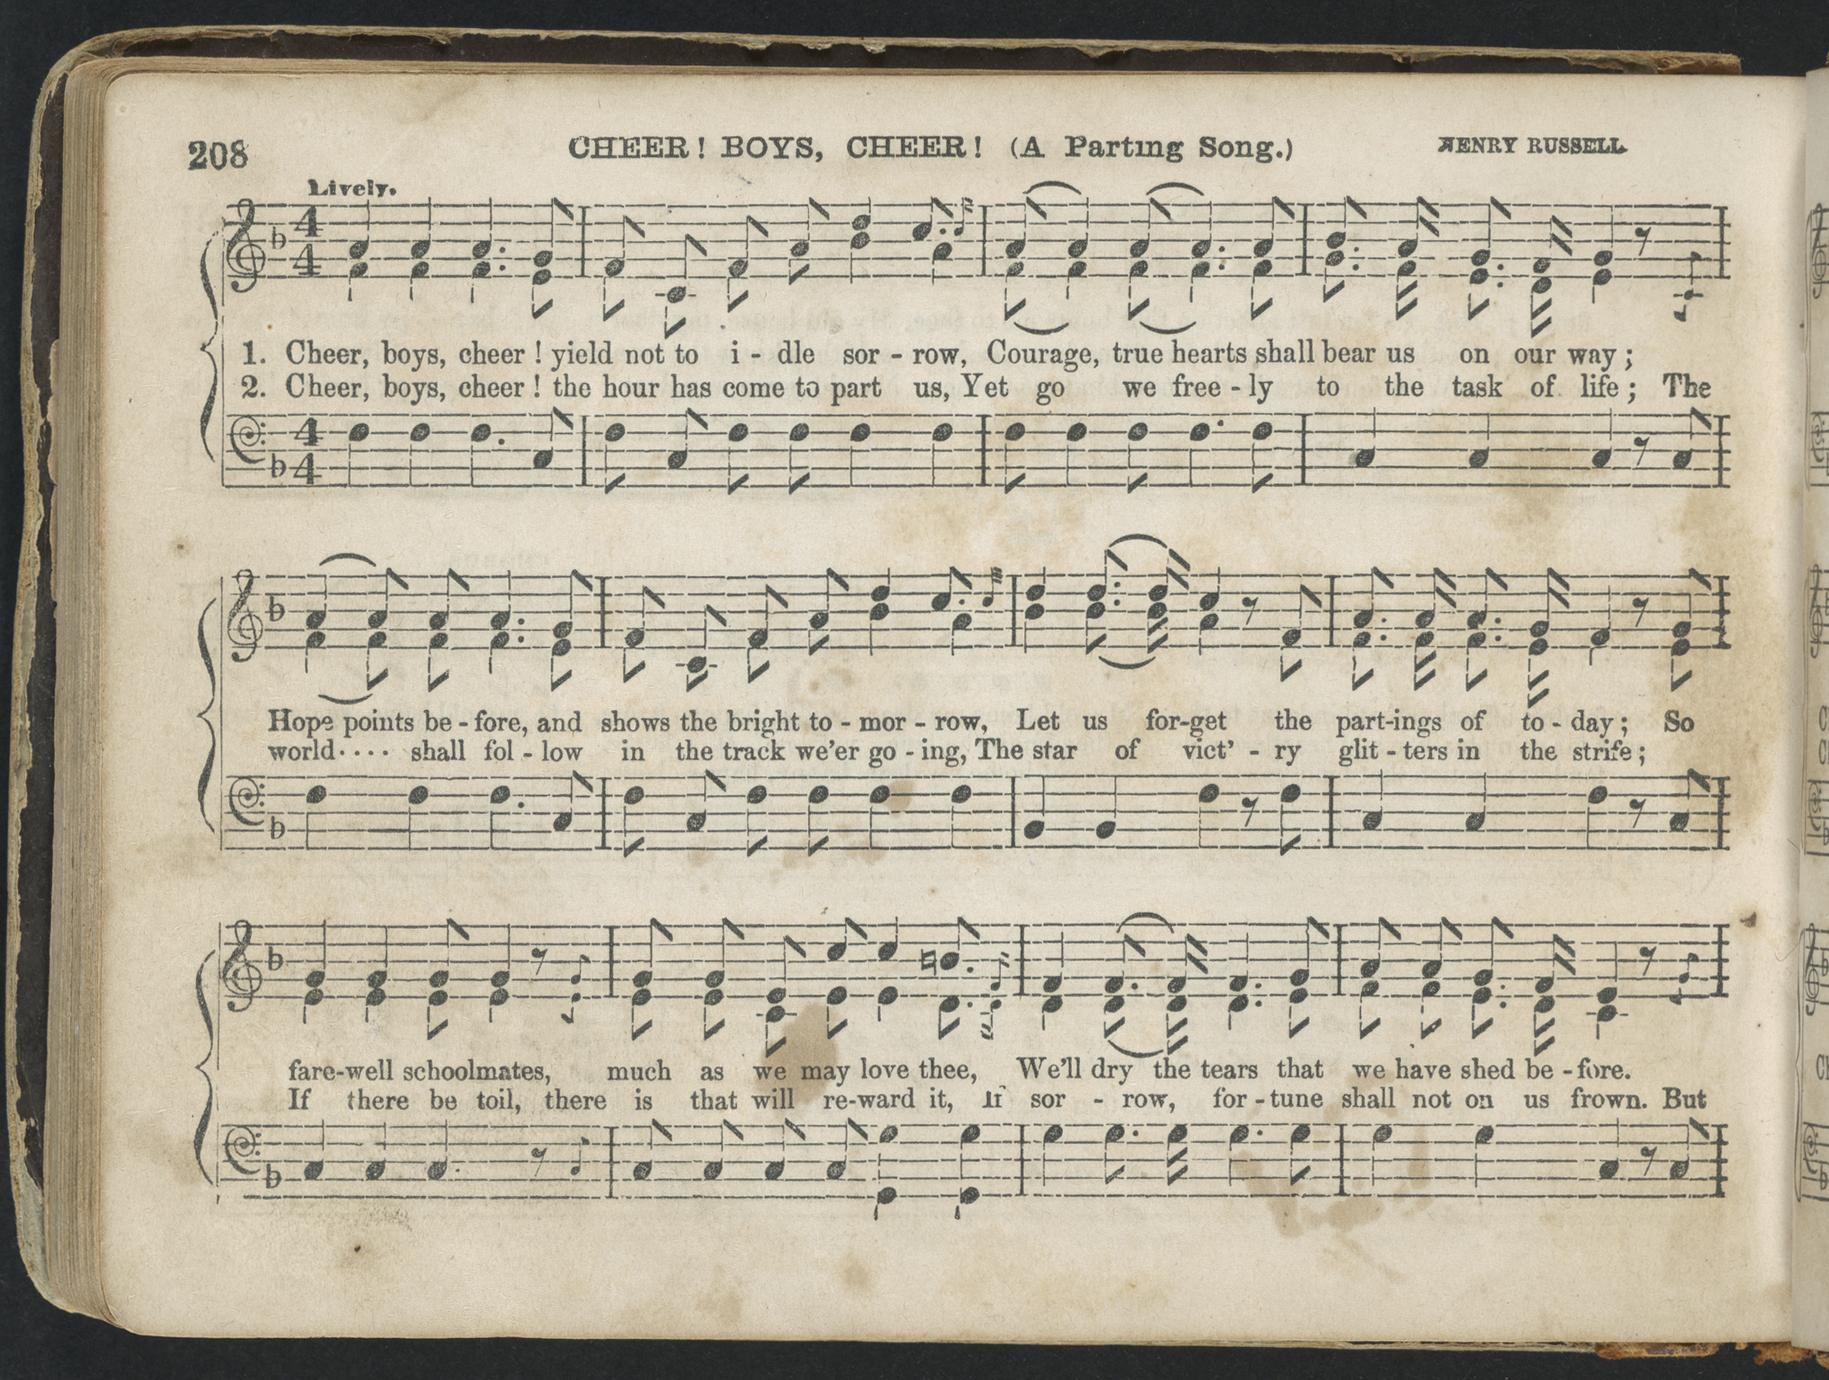 208
CHEER! BOYS, CHEER! (A Parting Song.)
HENRY RUSSELL
Lively.
1. Cheer, boys, cheer! yield not to i - dle sor - row, Courage, true hearts shall bear us on our way;
2. Cheer, boys, cheer! the hour has come to part us, Yet go we free - ly to the task of life; The
Hope points be - fore, and shows the bright to - mor - row, Let us for-get the part-ings of to - day; So
world.... shall fol - low in the track we'er go - ing, The star of vict' - ry glit - ters in the strife;
fare-well schoolmates, much as we may love thee, We'll dry the tears that we have shed be - fore.
If there be toil, there is that will re-ward it, If sor - row, for - tune shall not on us frown. But